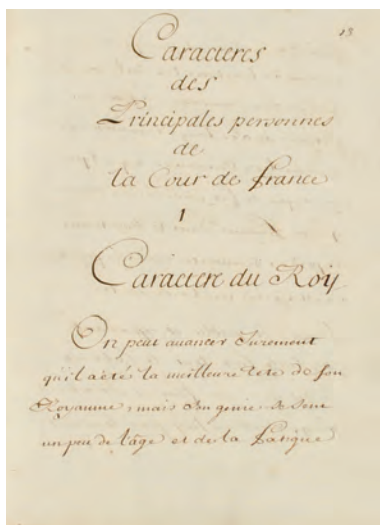 13
Caracteres
des
Principales personnes
de
la Cour de france
1
Caractere du Roy
On peut auancer Surement
qu'il a été la meilleure tete de son
Royaume; mais Son genie se sent
un peu de l'âge et de la fatigue